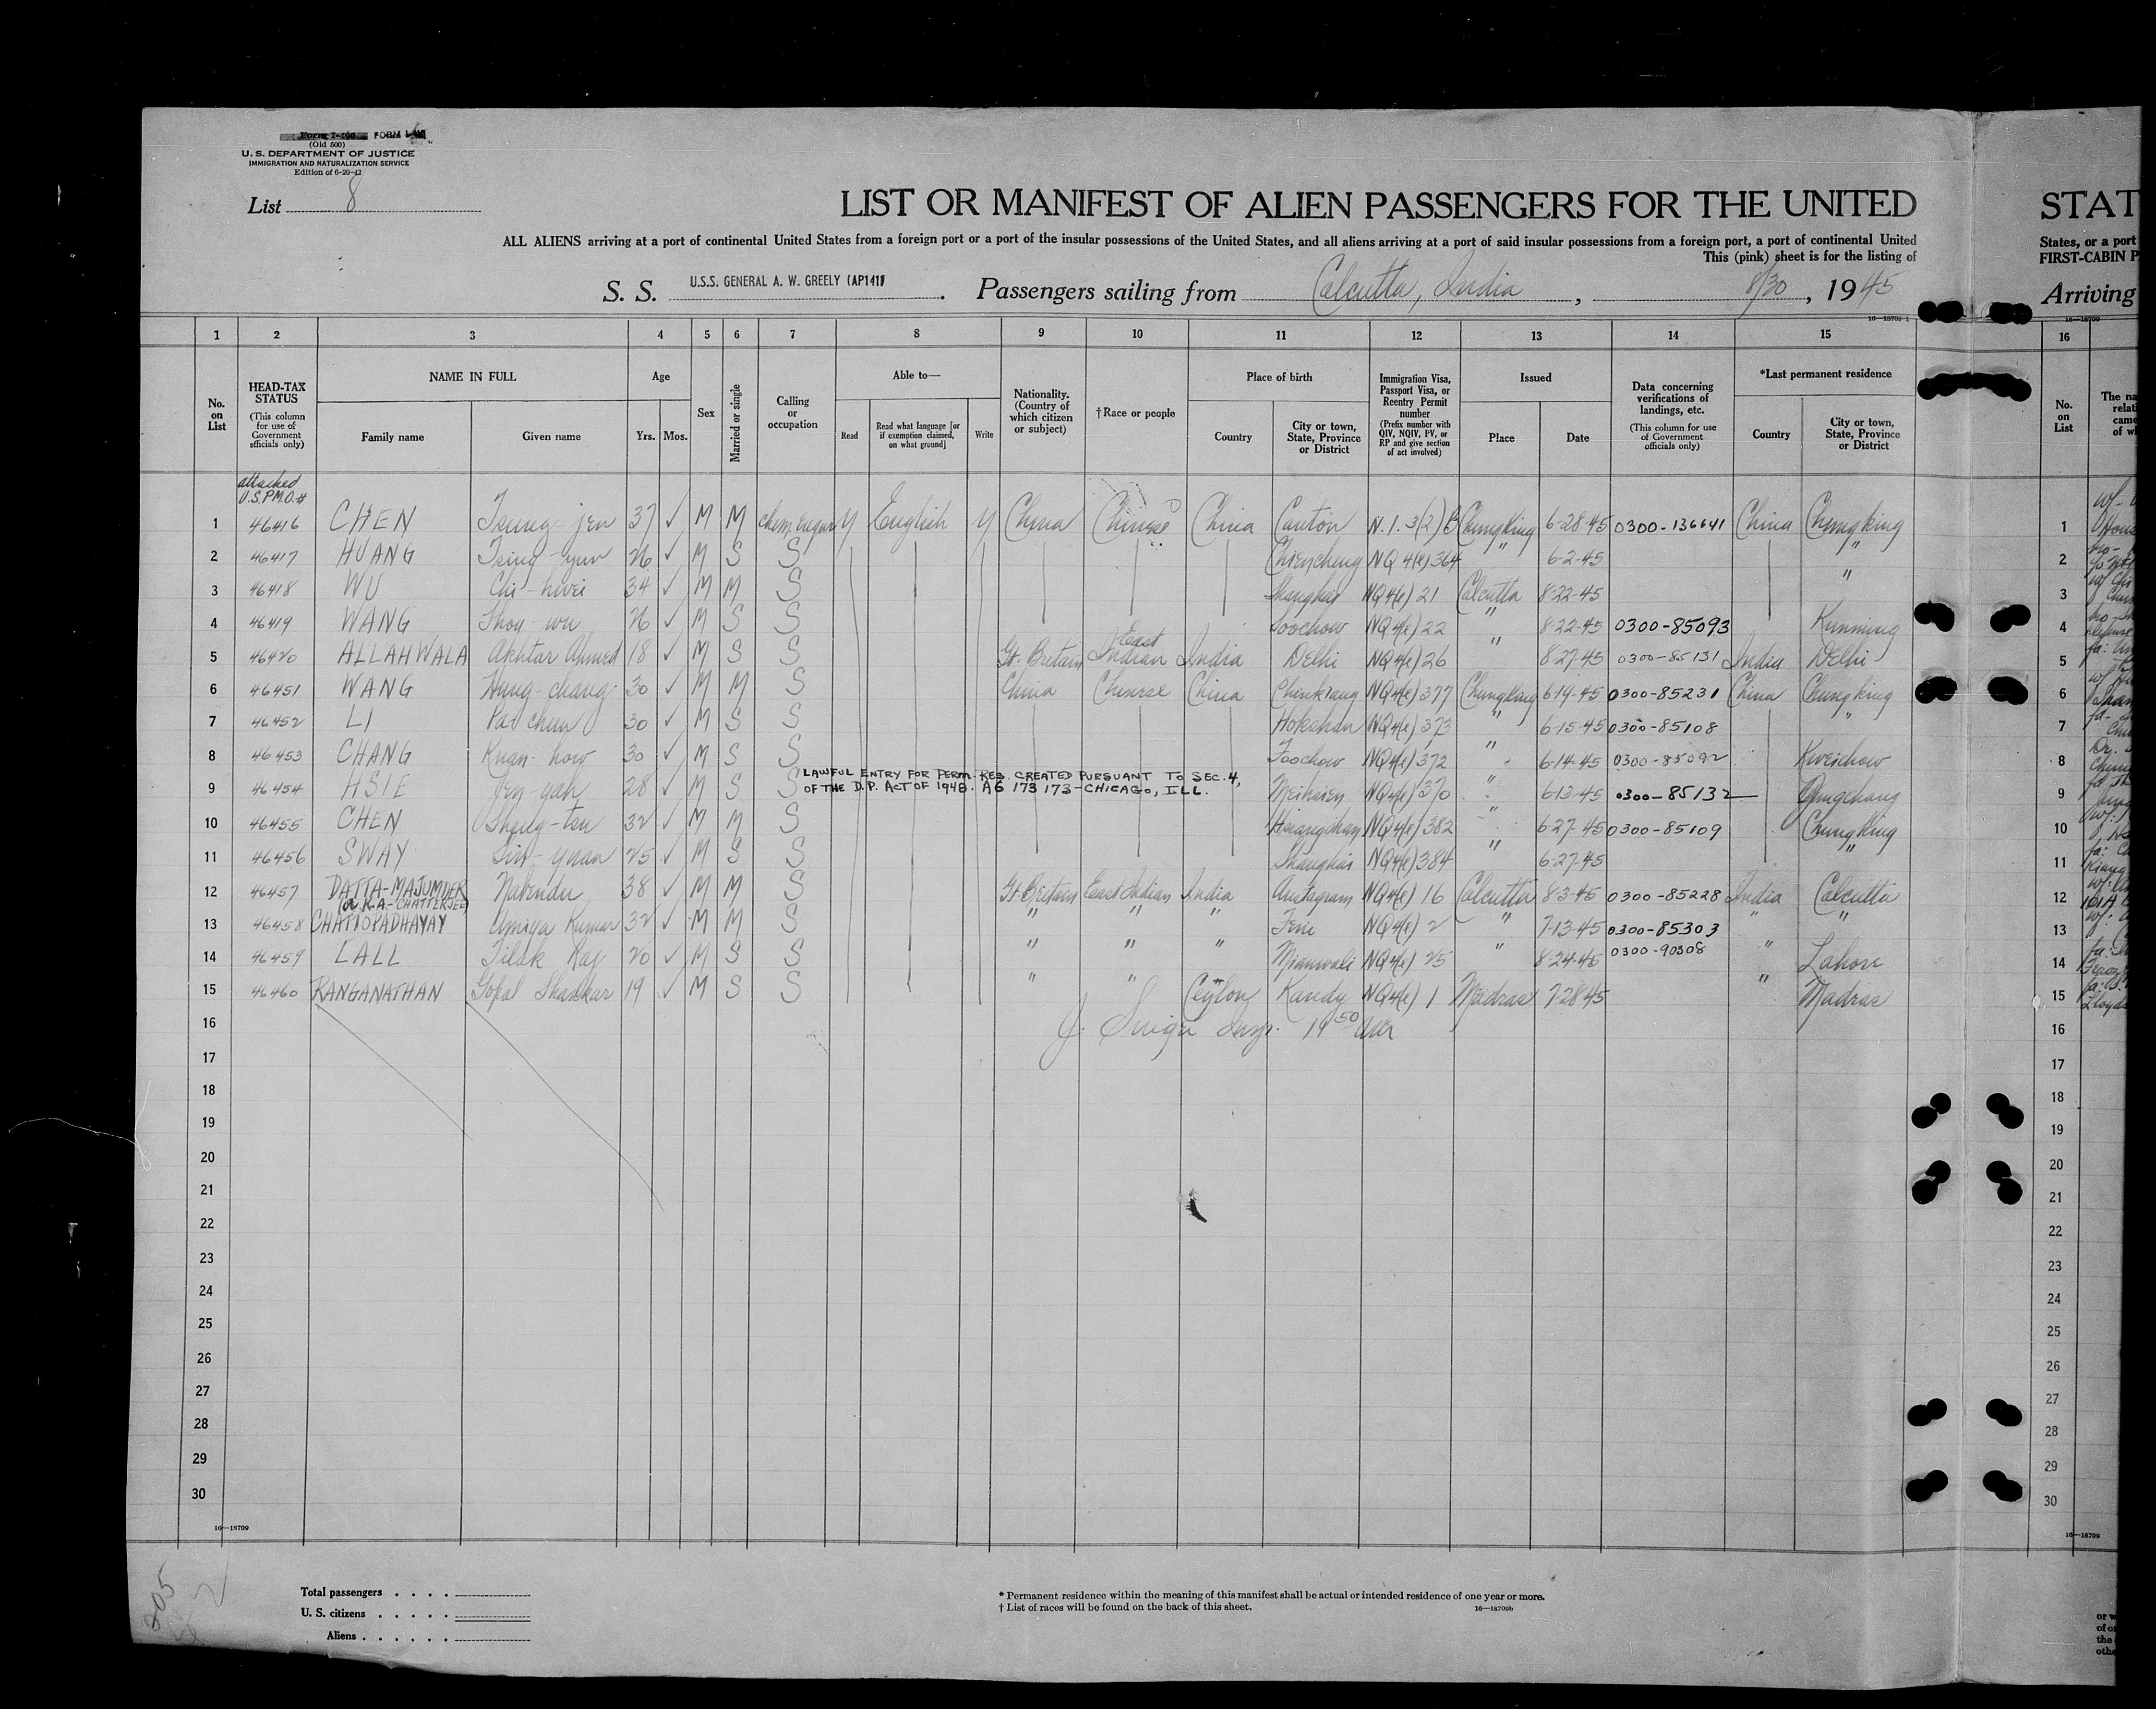 FORM I-415
(Old 500)
U. S. DEPARTMENT OF JUSTICE
IMMIGRATION AND NATURALIZATION SERVICE
Edition of 6-20-42
List 8
LIST OR MANIFEST OF ALIEN PASSENGERS FOR THE UNITED
STAT
ALL ALIENS arriving at a port of continental United States from a foreign port or a port of the insular possessions of the United States, and all aliens arriving at a port of said insular possessions from a foreign port, a port of continental United
States, or a port
This (pink) sheet is for the listing of
FIRST-CABIN P
S. S. U.S.S. GENERAL A. W. GREELY (AP141) . Passengers sailing from Calcutta, India , 8/30 , 1945
Arriving
16—18709-1
1 2 3 4 5 6 7 8 9 10 11 12 13 14 15 16
No. on List
HEAD-TAX STATUS
(This column for use of Government officials only)
NAME IN FULL
Family name Given name
Age
Yrs. Mos.
Sex
Married or single
Calling or occupation
Able to—
Read
Read what language [or if exemption claimed, on what ground]
Write
Nationality. (Country of which citizen or subject)
† Race or people
Place of birth
Country
City or town, State, Province or District
Immigration Visa, Passport Visa, or Reentry Permit number
(Prefix number with QIV, NQIV, PV, or RP and give section of act involved)
Issued
Place Date
Data concerning verifications of landings, etc.
(This column for use of Government officials only)
*Last permanent residence
Country
City or town, State, Province or District
No. on List
attached
U.S.P.M.O.#
1 46416 CHEN Tsung-jen 37 ✓ M M chem engnr y English y China Chinese China Canton N.I. 3(2) Chungking 6-28-45 0300-136641 China Chungking 1
2 46417 HUANG Tsing-yun 26 ✓ M S S NQ 4(e) 364 " 6-2-45 " 2
3 46418 WU 34 ✓ M M S Shanghai NQ 4(e) 21 Calcutta 8-22-45 " 3
4 46419 WANG Shou-wu 26 ✓ M S S Soochow NQ 4(e) 22 " 8-22-45 0300-85093 Kunming 4
5 46420 ALLAHWALA Akhtar Ahmed 18 ✓ M S S Gt. Britain East Indian India Delhi NQ 4(e) 26 " 8-27-45 0300-85131 India Delhi 5
6 46451 WANG Hung-chang 30 ✓ M M S China Chinese China Chinkiang NQ 4(e) 377 Chungking 6-19-45 0300-85231 China Chungking 6
7 46452 LI Pao chun 30 ✓ M S S NQ 4(e) 373 " 6-15-45 0300-85108 " 7
8 46453 CHANG Kuan-how 30 ✓ M S S Foochow NQ 4(e) 372 " 6-14-45 0300-85092 Kweichow 8
LAWFUL ENTRY FOR PERM. RES. CREATED PURSUANT TO SEC. 4,
9 46454 HSIE Jen-yah 28 ✓ M S S OF THE D.P. ACT OF 1948. A6 173 173-CHICAGO, ILL. Meihsien NQ 4(e) 370 " 6-13-45 0300-85132 9
10 46455 CHEN 32 ✓ M M S NQ 4(e) 382 " 6-27-45 0300-85109 Chungking 10
11 46456 SWAY 25 ✓ M S S Shanghai NQ 4(e) 384 " 6-27-45 " 11
12 46457 DATTA-MAJUMDER Nabendu 38 ✓ M M S Gt. Britain East Indian India Austagram NQ 4(e) 16 Calcutta 8-3-45 0300-85228 India Calcutta 12
(a.K.A.-CHATTERJEE)
13 46458 CHATTOPADHAYAY Amiya Kumar 32 ✓ M M S " " " NQ 4(e) 2 " 7-13-45 0300-85303 " " 13
14 46459 LALL Tilak Raj 20 ✓ M S S " " " Mianwali NQ 4(e) 25 " 8-24-45 0300-90308 " Lahore 14
15 46460 RANGANATHAN Gopal Shankar 19 ✓ M S S " " Ceylon Kandy NQ 4(e) 1 Madras 7-28-45 " Madras 15
16 16
17 17
18 18
19 19
20 20
21 21
22 22
23 23
24 24
25 25
26 26
27 27
28 28
29 29
30 30
16—18709 16—18709
Total passengers . . . .
U. S. citizens . . . . .
Aliens . . . . . .
* Permanent residence within the meaning of this manifest shall be actual or intended residence of one year or more.
† List of races will be found on the back of this sheet. 16—18709b
205